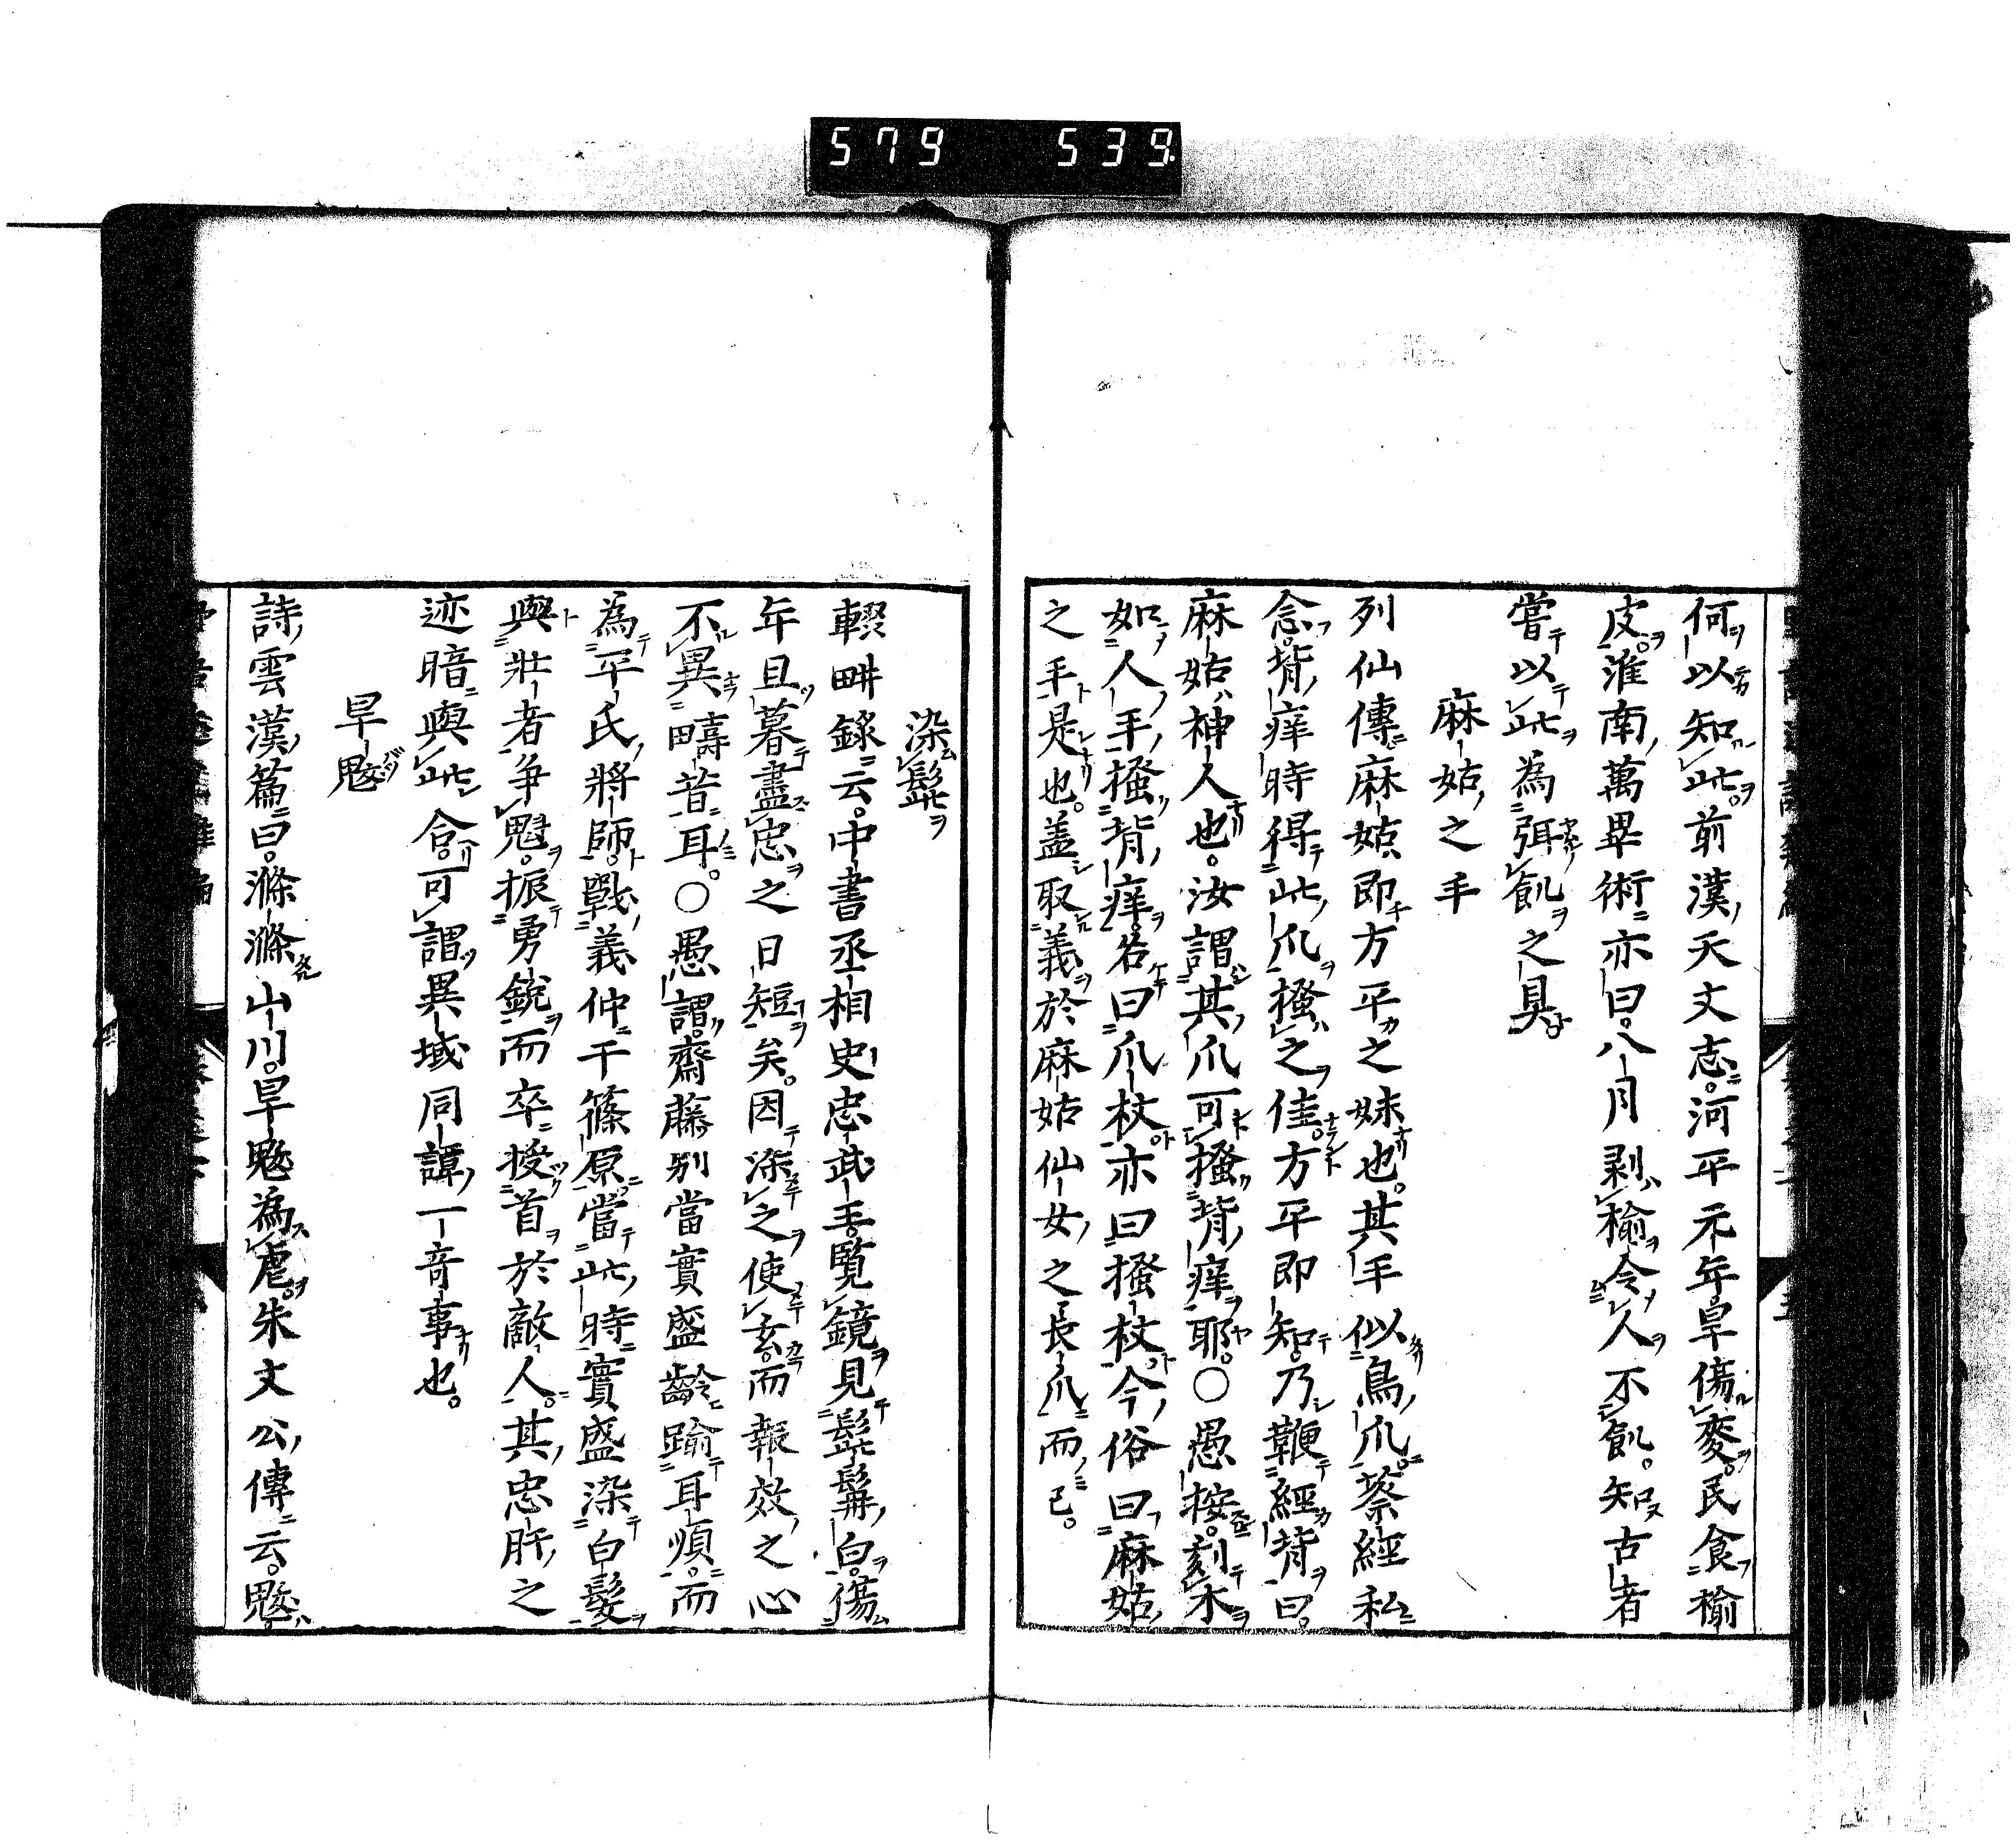 579 539
何以知此前漢天文志河平元年旱傷麥民食楡
皮淮南萬畢術亦曰八月剥楡令人不飢知古者
嘗以此為弭飢之具
麻姑之手
列仙傳麻姑即方平之妹也其手似鳥爪蔡經私
念背痒時得此爪搔之佳方平即知乃鞭經背曰
麻姑神人也汝謂其爪可搔背痒耶〇愚按刻木
如人手搔背痒名曰爪杖亦曰搔杖今俗曰麻姑
之手是也盖取義於麻姑仙女之長爪而已
染髭
輟畊錄云中書丞相史忠武王覧鏡見髭髯白傷
年且暮盡忠之日短矣因染之使玄而報效之心
不異疇昔耳〇愚謂齋藤別當實盛齡踰耳順而
為平氏將師戰義仲于篠原當此時實盛染白髮
與壯者争魁振勇銳而卒授首於敵人其忠肝之
迹暗與此合可謂異域同譚一竒事也
旱魃
詩雲漢篇曰滌滌山川旱魃為虐朱文公傳云魃